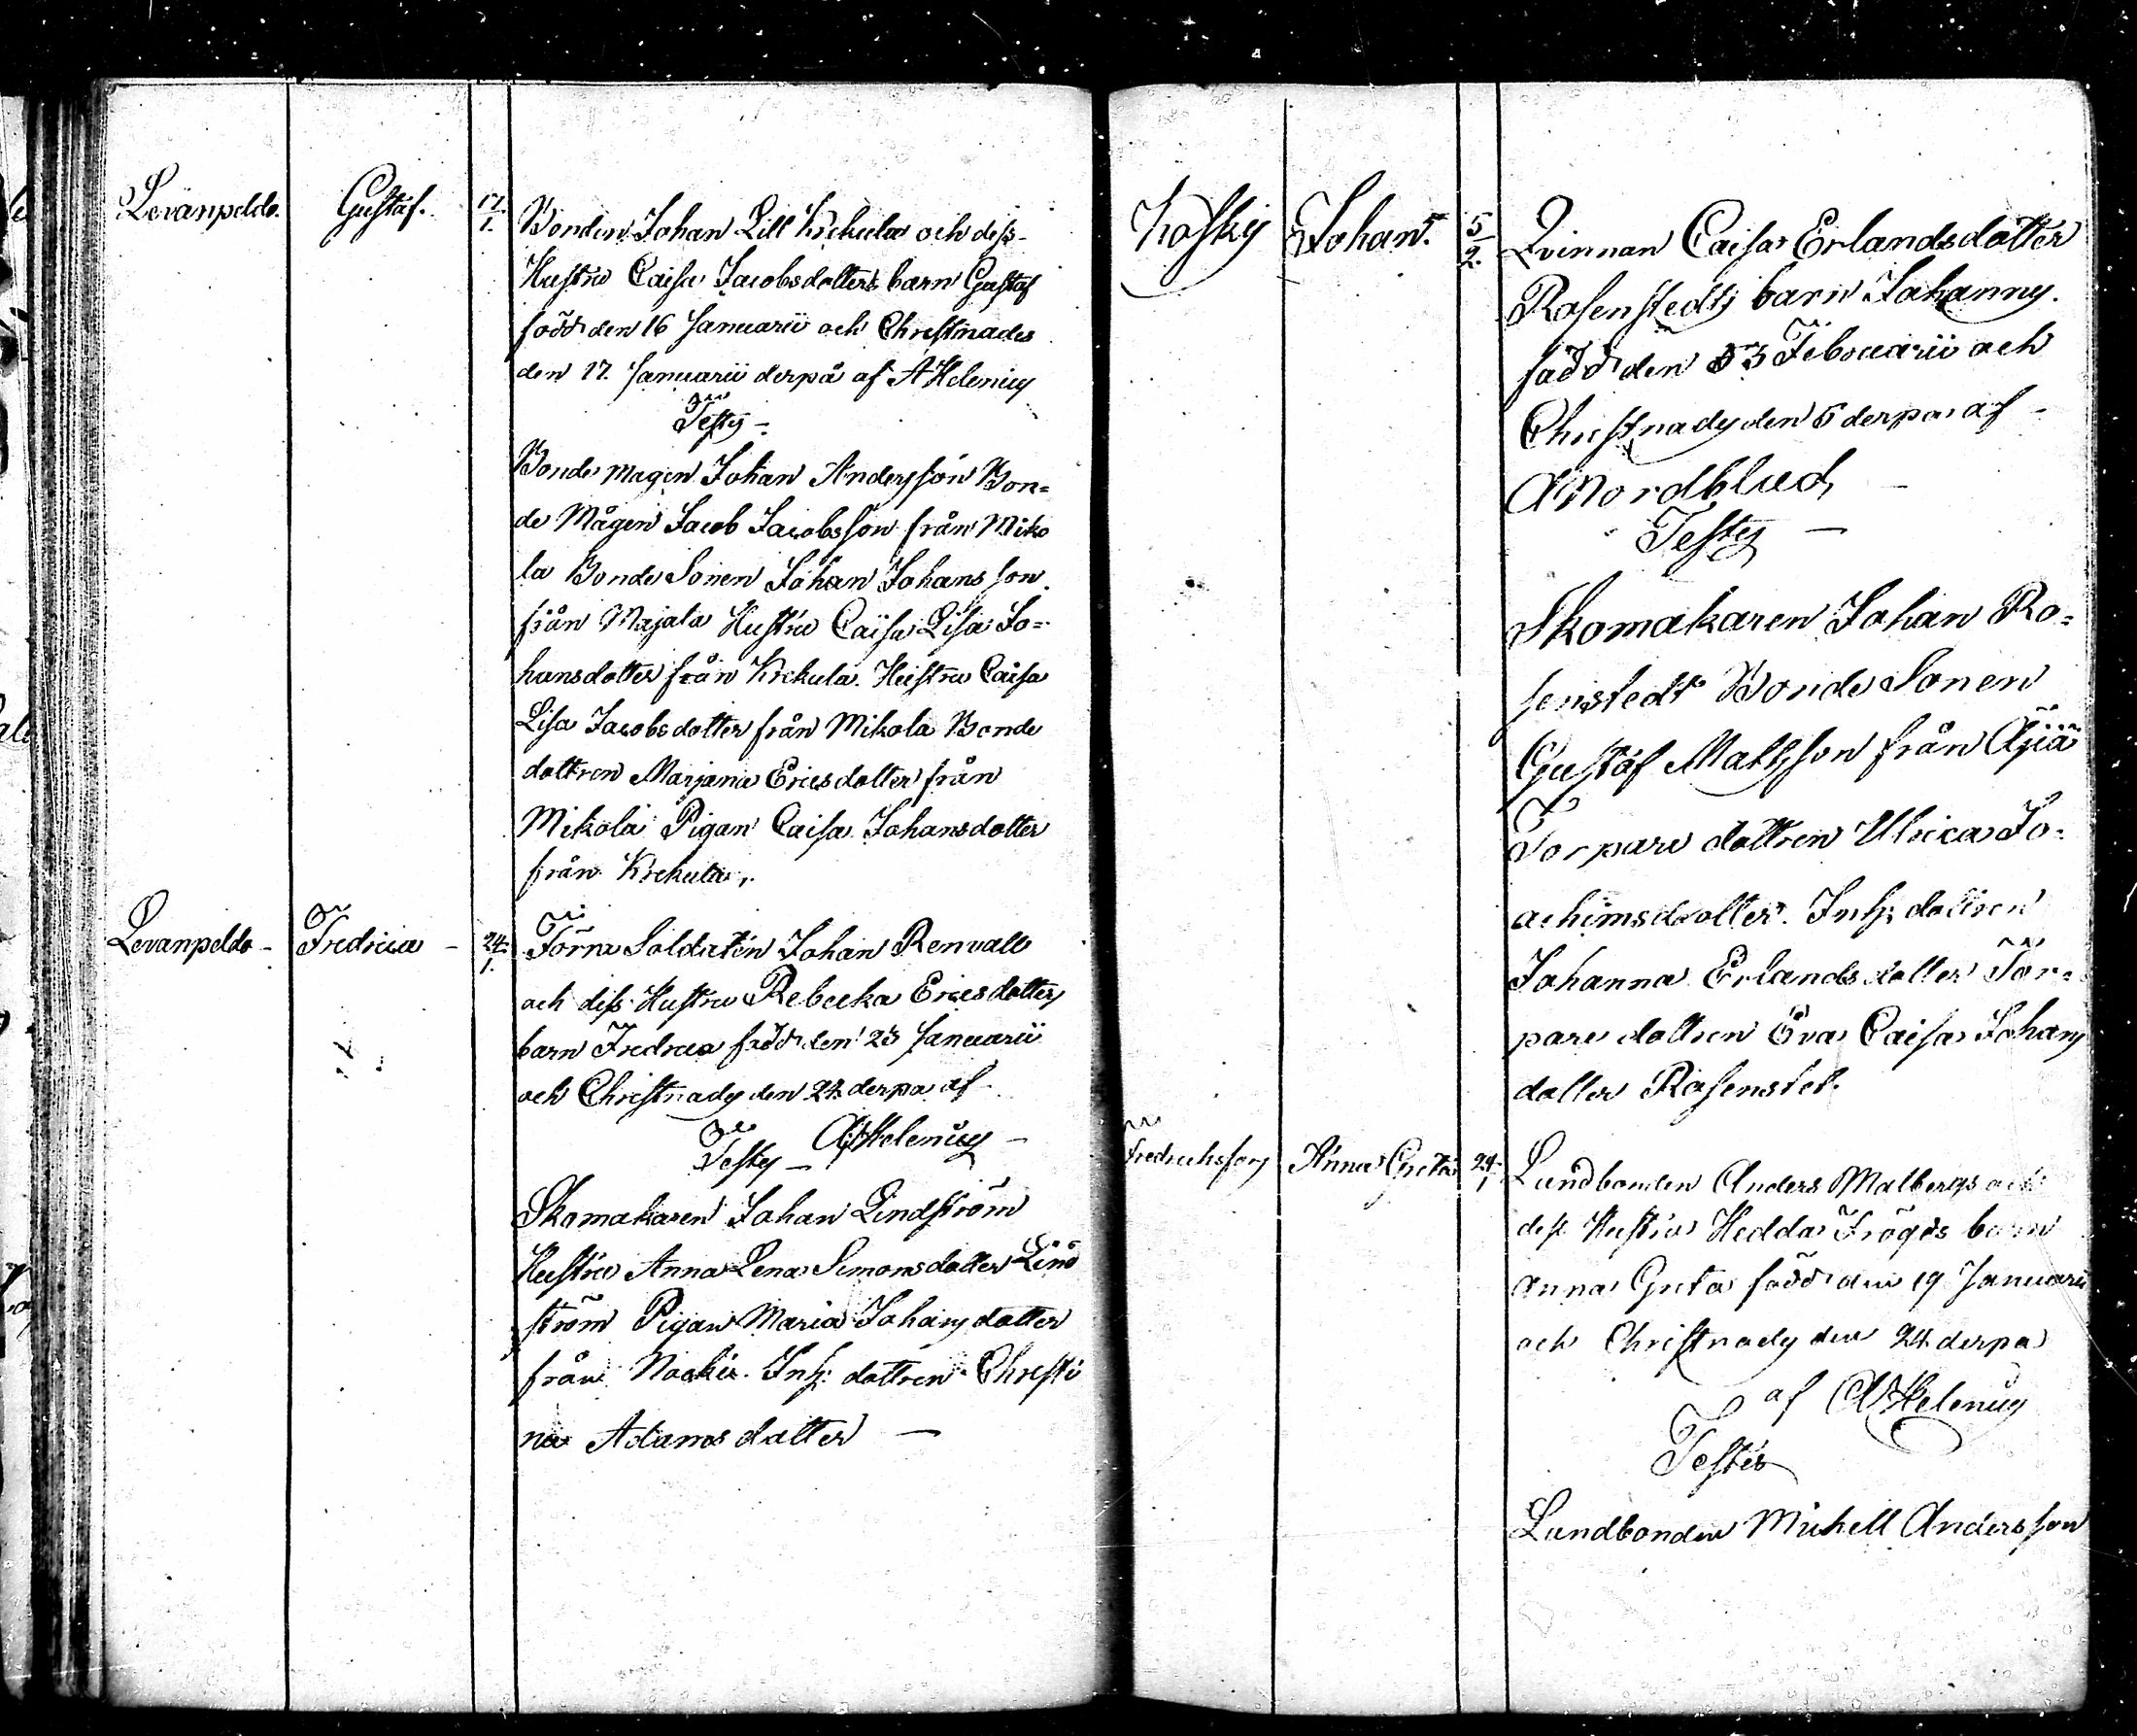 Levanpeldo. Gustaf. 17/1.
Bonden Johan Lill Krekula och dess
Hustru Caisa Jacobsdotters barn Gustaf
född den 16 Januarii och Christnades
den 17. Januarii derpå af A Helenius
Testes –
Bonde magen Johan Andersson Bon=
de Mågen Jacob Jacobsson från Miko
la Bonde Sonen Johan Johansson
från Majala Hustru Caisa Lisa Jo=
hansdotter från Krekula. Hustru Caisa
Lisa Jacobsdotter från Mikola Bonde
dottren Marjana Ericsdotter från
Mikola Pigan Caisa Johansdotter
från Krekula,.
Levanpeldo – Fredrica – 24/1.
Förra Soldaten Johan Renvall
och dess Hustru Rebecka Ericsdotters
barn Fredrica född den 23 Januarii
och Christnades den 24 derpa af
Testes – A Helenius –
Skomakaren Johan Lindström
Hustru Anna Lena Simonsdotter Lind
ström Pigan Maria Johansdotter
från Nackis. Inh: dottren Christi
na Adamsdotter –
Koskis Johan. 5/2.
Qvinnan Caisa Erlandsdotter
Rosenstedts barn Johannes.
född den 3 Februarii och
Christnades den 5 derpa af –
A Nordblad,
Testes –
Skomakaren Johan Ro=
senstedt Bonde Sonen
Gustaf Matsson från Äijä
Torpare dottren Ulrica Jo=
achimsdotter. Inh: dottren
Johanna Erlandsdotter Tor=
pare dottren Eva Caisa Johans
dotter Rosenstet.
Fredrichsfors Anna Greta 24/1
Lundbonden Anders Malbergs och
dess Hustrus Hedda Frögds barn
Anna Greta född den 19 Januarii
och Christnades den 24 derpa
af A Helenius
Testes
Lundbonden Michell Andersson